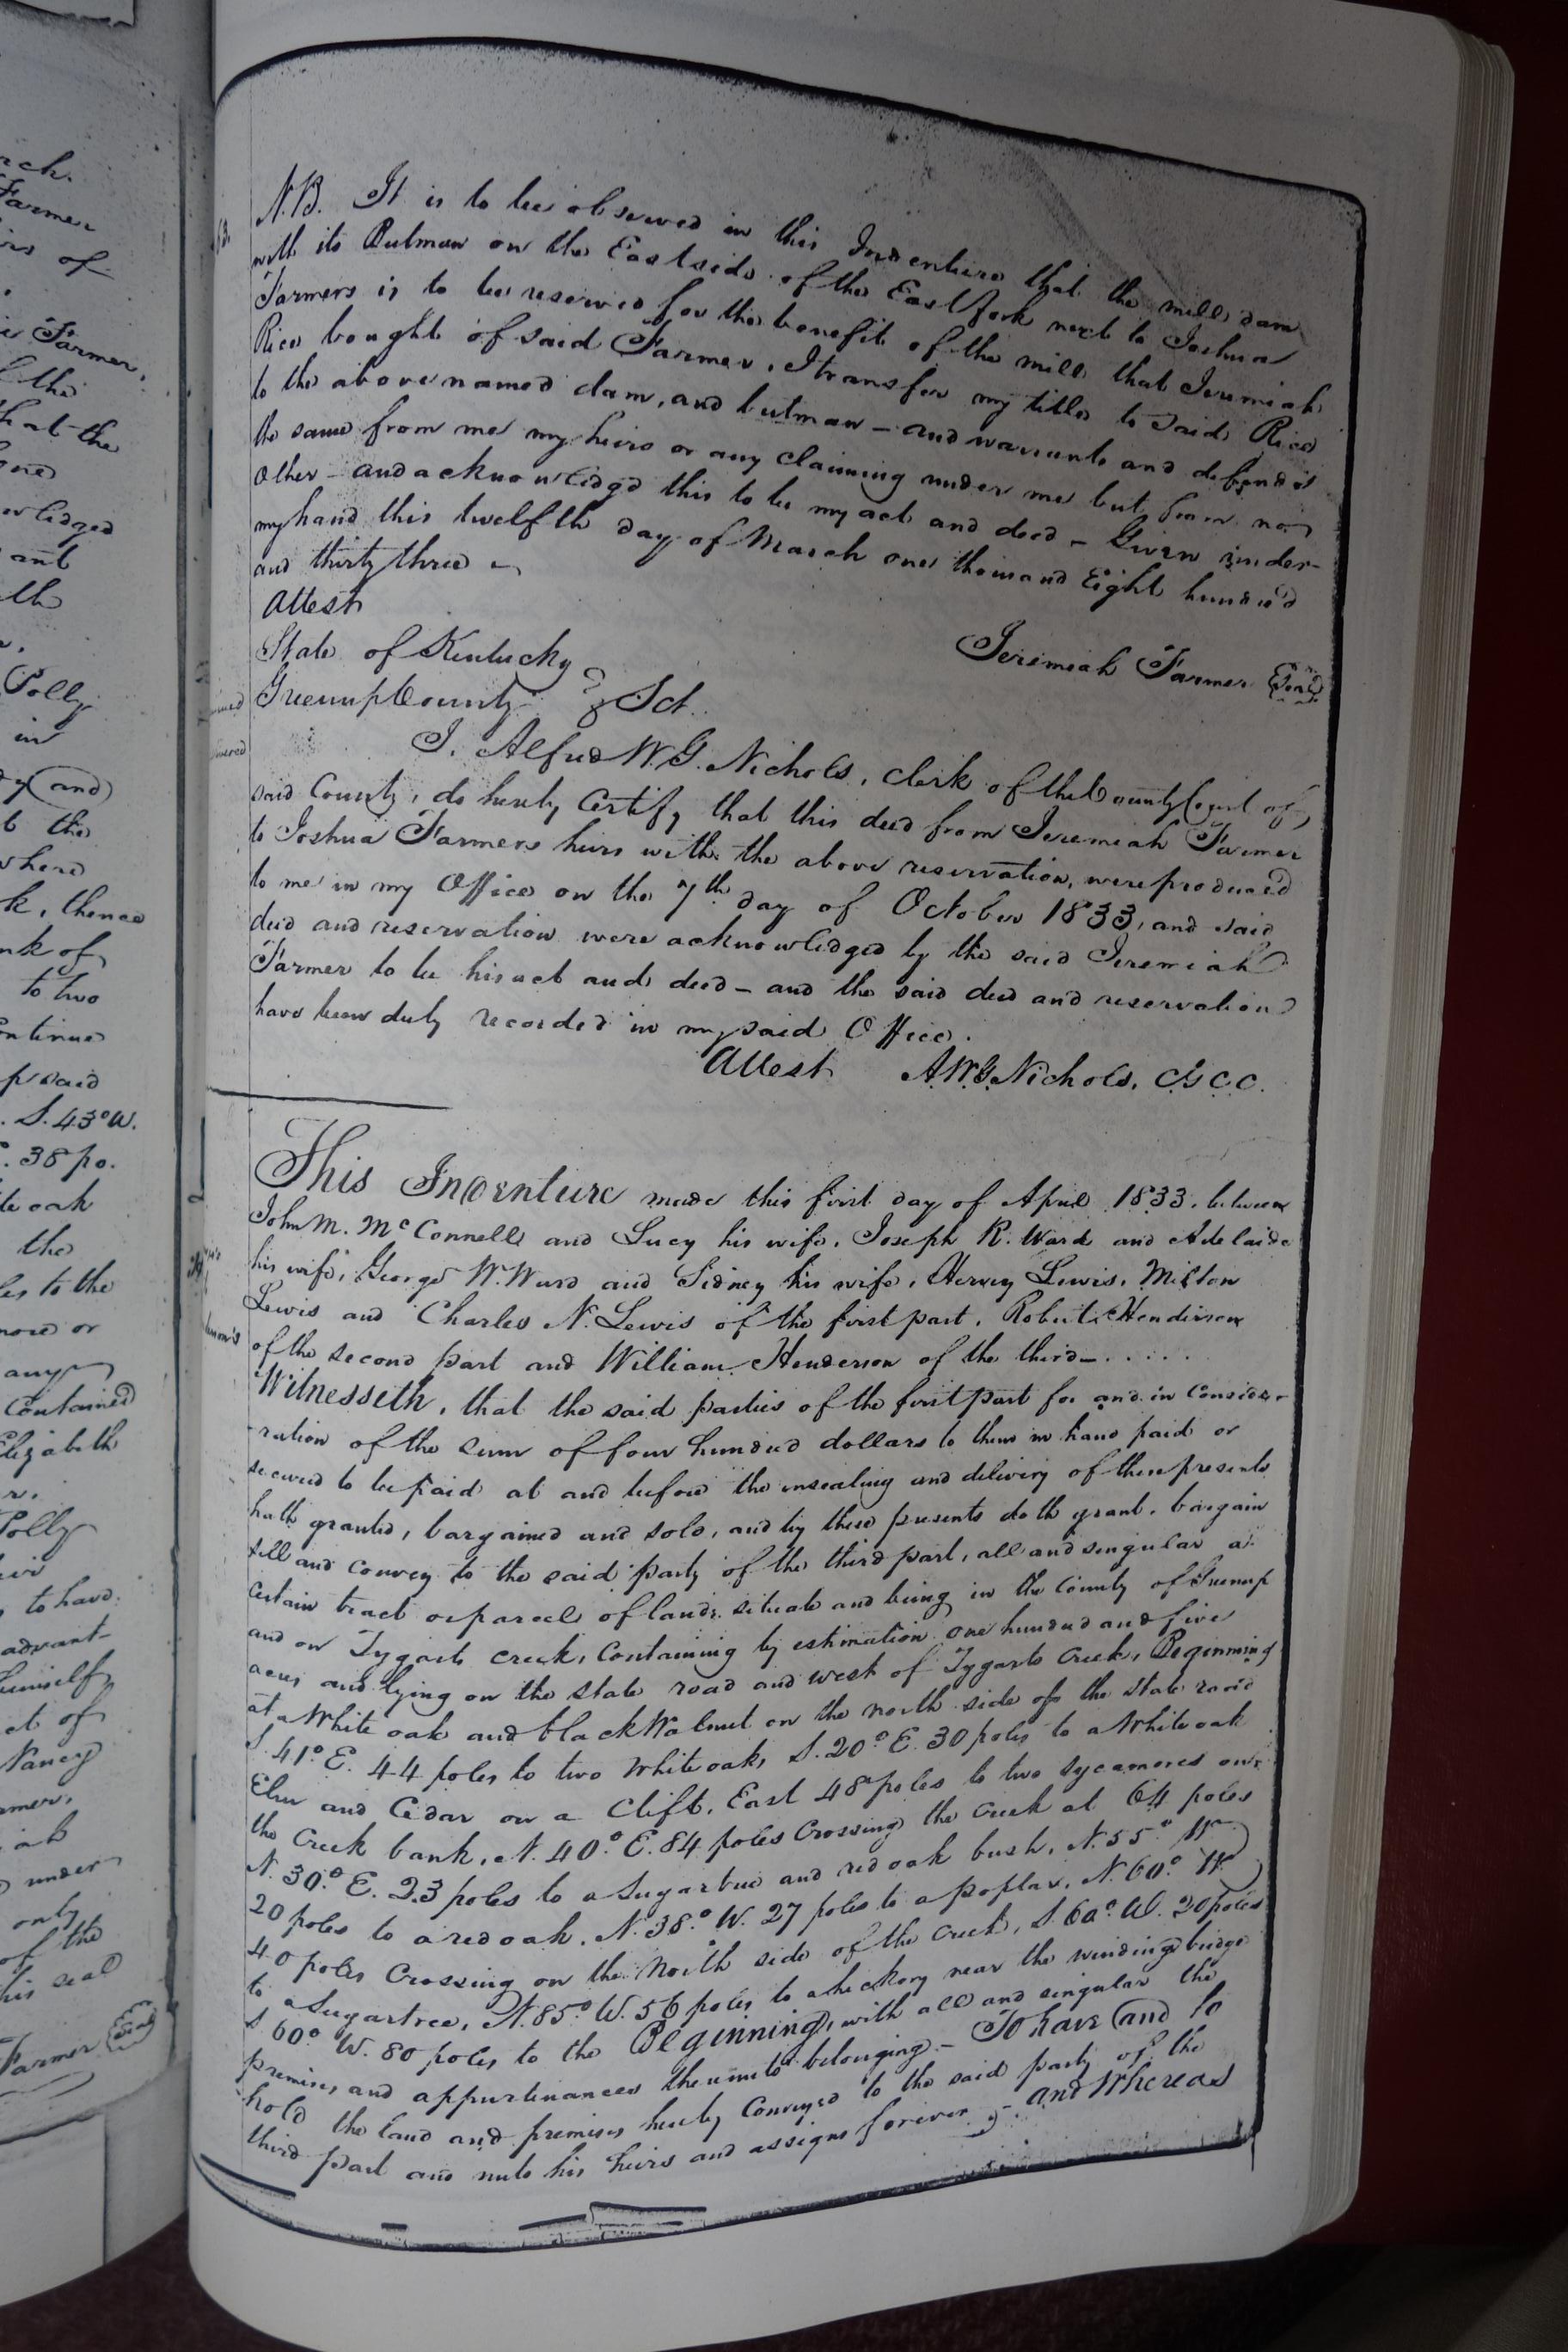 N.B. It is to be observed in this Indenture that the mill dam
with its Butman on the East side of the East fork next to Joshua
Farmers is to be reserved for the benefit of the mill that Jeremiah
Rice bought of said Farmer, I transfer my title to said Rice
to the above named dam, and butman – and warrants and defends
the same from me my heirs or any claiming under me but from no
other – and acknowledge this to be my act and deed – Given under
my hand this twelfth day of March one thousand Eight hundred
and thirty three
Attest
Jeremiah Farmer Seal
State of Kentucky
Greenup County Sct.
I. Alfred W. G. Nichols, clerk of the County Court of
said County, do hereby Certify that this deed from Jeremiah Farmer
to Joshua Farmers heirs with the above reservation, were produced
to me in my Office on the 7th day of October 1833, and said
deed and reservation were acknowledged by the said Jeremiah
Farmer to be his act and deed – and the said deed and reservation
have been duly recorded in my said Office.
Attest A.W.G. Nichols, C.G.C.C.
This Indenture made this first day of April 1833, between
John M. McConnell and Lucy his wife, Joseph R. Ward and Adelaide
his wife, George W. Ward and Sidney his wife, Hervey Lewis, Milton
Lewis and Charles N. Lewis of the first part, Robert Henderson
of the second part and William Henderson of the third – . . . . .
Witnesseth, that the said parties of the first part for and in Conside-
-ration of the sum of four hundred dollars to them in hand paid or
secured to be paid at and before the ensealing and delivery of these presents
hath granted, bargained and sold, and by these presents doth grant, bargain
sell and convey to the said party of the third part, all and singular a
certain tract or parcel of land, situate and being in the County of Greenup
and on Tygarts creek, Containing by estimation one hundred and five
acres and lying on the state road and west of Tygarts Creek, Beginning
at a White oak and black Walnut on the north side of the state road
S. 41° E. 44 poles to two White oaks, S. 20° E. 30 poles to a White oak
Elm and Cedar on a Clift, East 48 poles to two sycamores on
the Creek bank, N. 40° E. 84 poles Crossing the Creek at 64 poles
N. 30° E. 23 poles to a Sugartree and red oak bush, N. 55° W
20 poles to a red oak, N. 38° W. 27 poles to a poplar, N. 60° W
40 poles Crossing on the North side of the Creek, S. 60° W. 20 poles
to a Sugartree, N. 85° W. 56 poles to a hickory near the winding bridge
S 60° W. 80 poles to the Beginning, with all and singular the
premises and appurtinances thereunto belonging – To have and to
hold the land and premises hereby Conveyed to the said party of the
third part and unto his heirs and assigns forever – and Whereas
rch.
Farmer
of
Farmer,
the
that the
ant
Polly
in
(and)
the
where
k, thence
nk of
to two
ontinue
said
S. 43° W.
38 po.
te oak
the
les to the
more or
any
Contained
Elizabeth
Polly
to have
advant-
himself
Nancy
under
only
of the
his seal
Farmer Seal